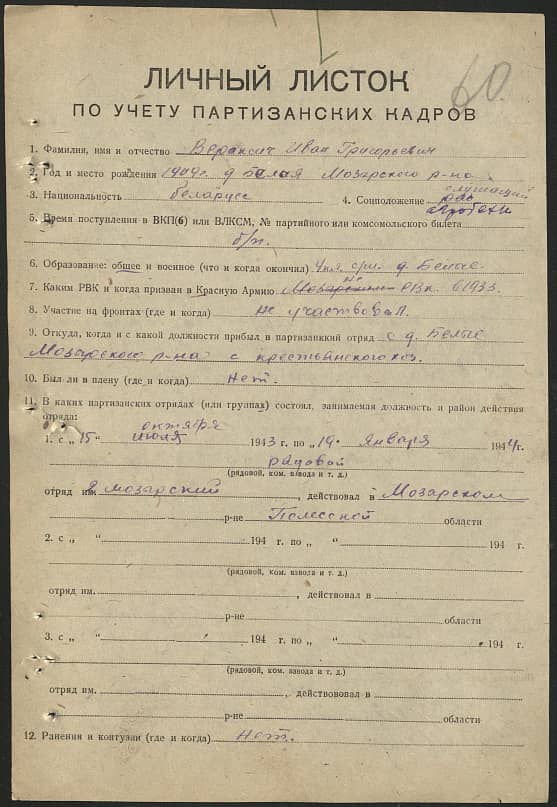 60.
ЛИЧНЫЙ ЛИСТОК
ПО УЧЕТУ ПАРТИЗАНСКИХ КАДРОВ
1. Фамилия, имя и отчество Вераксич Иван Григорьевич
2. Год и место рождения 1909 г. д Белая Мозарского р-на
3. Национальность беларусс 4. Соцположение служащий
5. Время поступления в ВКП(б) или ВЛКСМ, № партийного или комсомольского билета
б/п.
6. Образование: общее и военное (что и когда окончил) 4 кл. д. Белые.
7. Каким РВК и когда призван в Красную Армию РВК. в 1933.
8. Участие на фронтах (где и когда) не участвовал.
9. Откуда, когда и с какой должности прибыл в партизанкий отряд с д. Белые
Мозарского р-на с крестьянского хоз.
10. Был ли в плену (где и когда) Нет.
11. В каких партизанских отрядах (или группах) состоял, занимаемая должность и район действия
отряда:
октября
1. с „15" июля 1943 г. по „19" января 1944 г.
рядовой
(рядовой, ком. взвода и т. д.)
отряд им. 2 мозарский, действовал в Мозарском
р-не Полесской области
2. с „ " 194 г. по „ " 194 г.
(рядовой, ком. взвода и т. д.)
отряд им. , действовал в
р-не области
3. с „ " 194 г. по „ " 194 г.
(рядовой, ком. взвода и т. д.)
отряд им. , действововал в
р-не области
12. Ранения и контузии (где и когда) Нет.